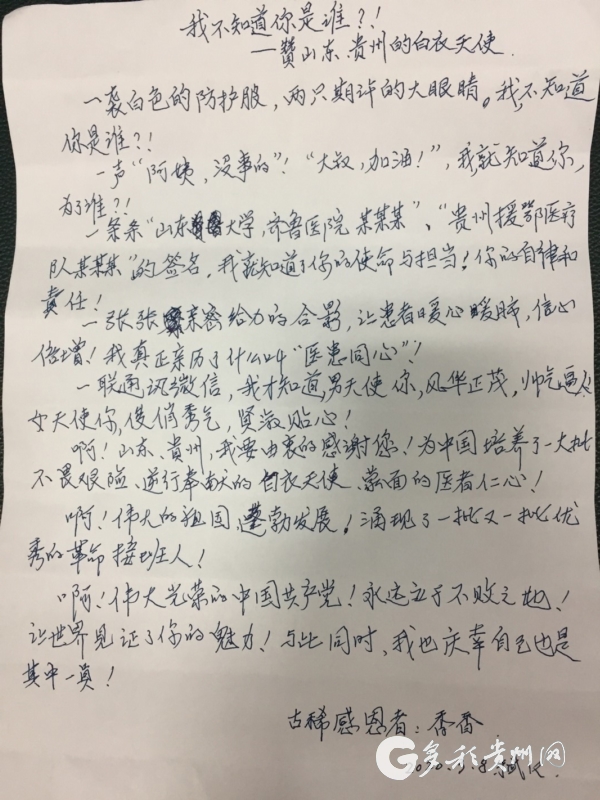 我不知道你是谁?!
——赞山东、贵州的白衣天使
一袭白色的防护服,两只期许的大眼睛。我,不知道
你是谁?!
一声“阿姨,没事的”!“大叔,加油!”,我就知道你,
为了谁?!
一条条“山东大学,齐鲁医院 某某某”、“贵州援鄂医疗
队某某某”的签名,我就知道了你的使命与担当!你的自律和
责任!
一张张亲密给力的合影,让患者暖心暖肺,信心
倍增!我真正亲历了什么叫“医患同心”!
一联通讯微信,我才知道,男天使你,风华正茂,帅气逼人
女天使你,俊俏秀气,贤淑贴心!
啊!山东、贵州,我要由衷的感谢您!为中国培养了一大批
不畏艰险、逆行奉献的白衣天使、蒙面的医者仁心!
啊!伟大的祖国,蓬勃发展!涌现了一批又一批优
秀的革命接班人!
啊!伟大光荣的中国共产党!永远立于不败之地!
让世界见证了你的魅力!与此同时,我也庆幸自己也是
其中一员!
古稀感恩者:香香
多彩贵州网
2020.3.8